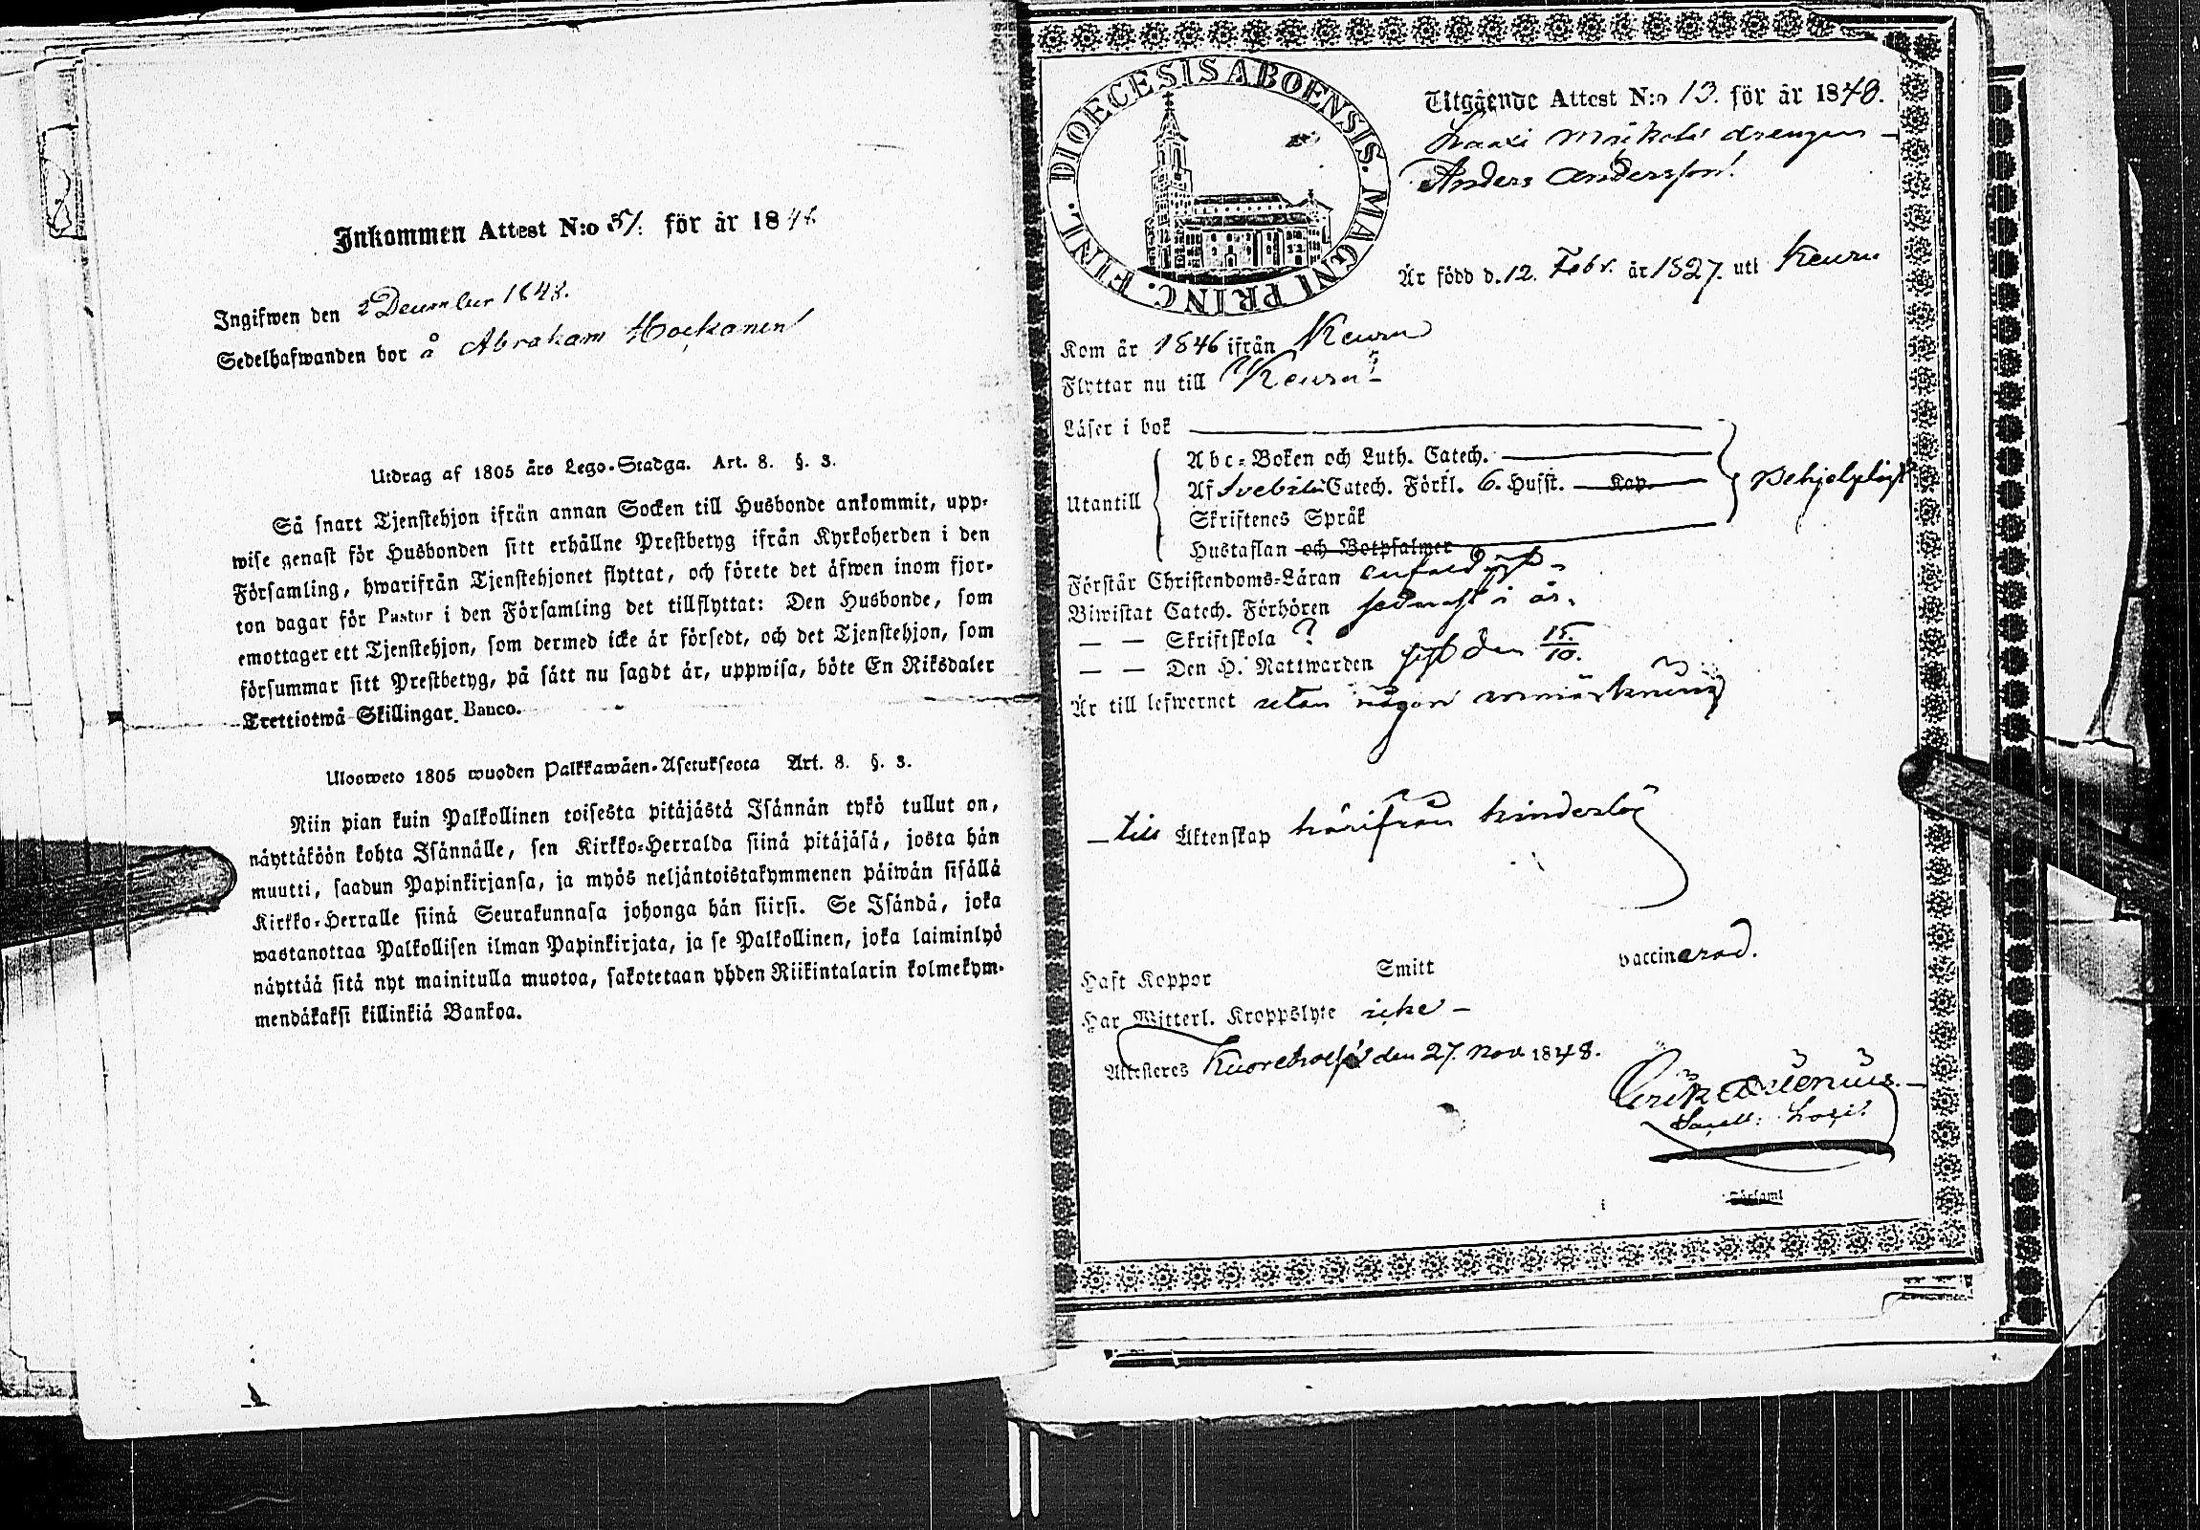 Inkommen Attest N:o 51. för år 1848
Ingifwen den 2 December 1848.
Sedelhafwanden bor å Abraham Hoskanen
Utdrag af 1805 års Lego-Stadga. Art. 8. §. 3.
Så snart Tjenstehjon ifrån annan Socken till Husbonde ankommit, upp-
wise genast för Husbonden sitt erhållne Prestbetyg ifrån Kyrkoherden i den
Församling, hwarifrån Tjenstehjonet flyttat, och förete det äfwen inom fjor-
ton dagar för Pastor i den Församling det tillflyttat: Den Husbonde, som
emottager ett Tjenstehjon, som dermed icke är försedt, och det Tjenstehjon, som
försummar sitt Prestbetyg, på sätt nu sagdt är, uppwisa, böte En Riksdaler
Trettiotwå Skillingar Banco.
Ulosweto 1805 wuoden Palkkawäen-Asetuksesta Art. 8. §. 3.
Niin pian kuin Palkollinen toisesta pitäjästä Isännän tykö tullut on,
näyttäköön kohta Isännälle, sen Kirkko-Herralda siinä pitäjäsä, josta hän
muutti, saadun Papinkirjansa, ja myös neljäntoistakymmenen päiwän sisällä
Kirkko-Herralle siinä Seurakunnasa johonga hän siirsi. Se Isändä, joka
wastanottaa Palkollisen ilman Papinkirjata, ja se Palkollinen, joka laiminlyö
näyttää sitä nyt mainitulla muotoa, sakotetaan yhden Riikintalarin kolmekym-
mendäkaksi killinkiä Bankoa.
DIOECESIS ABOENSIS. MAGNI PRINC. FINL.
Utgående Attest N:o 13. för år 1848.
drengen
Anders Andersson
Är född d. 12. Febr. år 1827. uti Keuru
Kom år 1846 ifrån Keuru
Flyttar nu till Keuru
Läser i bok
Utantill
Abc-Boken och Luth. Catech.
Af Svebilii Catech. Förkl. 6. Hufst. Kap.
Skriftenes Språk
Hustaflan och Botpsalmer
Behjelpligt
Förstår Christendoms-Läran enfaldigt
Biwistat Catech. Förhören sednast i år.
— — Skriftskola ?
— — Den H. Nattwarden sist den 15/10.
Är till lefwernet utan någon anmärkning
— till Äktenskap härifrån hinderslös
Haft Koppor Smitt vaccinerad.
Har Witterl. Kroppslyte icke —
Attesteres den 27. Nov. 1848.
Församl
i